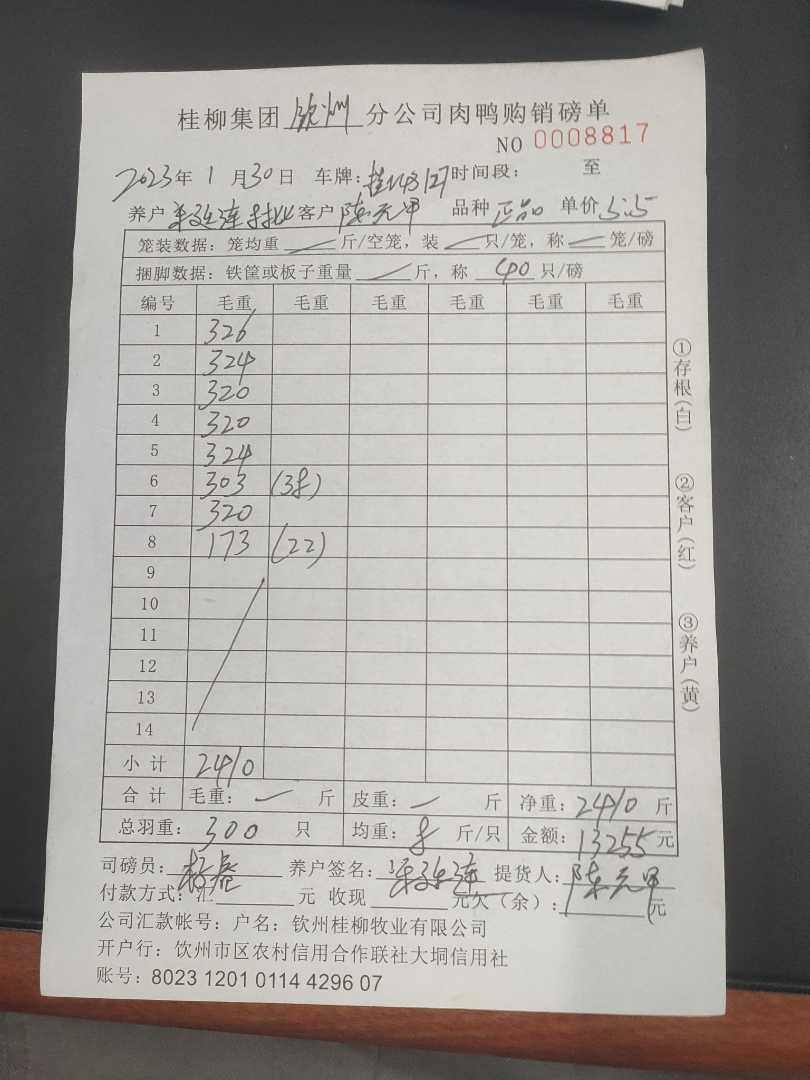 桂柳集团 钦州 分公司肉鸭购销磅单
NO 0008817
2023年 1 月30日 车牌: 时间段: 至
养户 客户 陈元甲 品种 正品 单价 5.5
笼装数据: 笼均重 — 斤/空笼, 装 — 只/笼, 称 — 笼/磅
捆脚数据: 铁筐或板子重量 — 斤, 称 40 只/磅
编号 毛重 毛重 毛重 毛重 毛重 毛重
1 326
2 324
3 320
4 320
5 324
6 303 (38)
7 320
8 173 (22)
9
10
11
12
13
14
小计 2410
合计 毛重: — 斤 皮重: — 斤 净重: 2410 斤
总羽重: 300 只 均重: 8 斤/只 金额: 13255 元
司磅员: 养户签名: 提货人: 陈元甲
付款方式: 汇 元 收现 元欠(余): 元
公司汇款帐号: 户名: 钦州桂柳牧业有限公司
开户行: 钦州市区农村信用合作联社大垌信用社
账号: 8023 1201 0114 4296 07
①存根(白)
②客户(红)
③养户(黄)